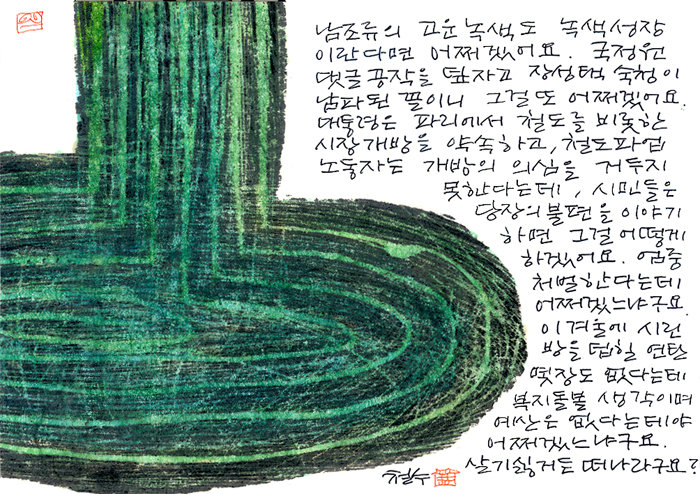 남조류의 고운 녹색도 녹색성장
이란다면 어쩌겠어요. 국정원
댓글공작을 덮자고 장성택 숙청이
남파된 꼴이니 그걸 또 어쩌겠어요.
대통령은 파리에서 철도를 비롯한
시장개방을 약속하고, 철도파업
노동자는 개방의 의심을 거두지
못한다는데, 시민들은
당장의 불편을 이야기
하면 그걸 어떻게
하겠어요. 엄중
처벌한다는데
어쩌겠느냐구요.
이 겨울에 시린
방을 덥힐 연탄
몇장도 없다는데
복지돌볼 생각이며
예산은 없다는데야
어쩌겠느냐구요.
살기싫거든 떠나라구요?
철수